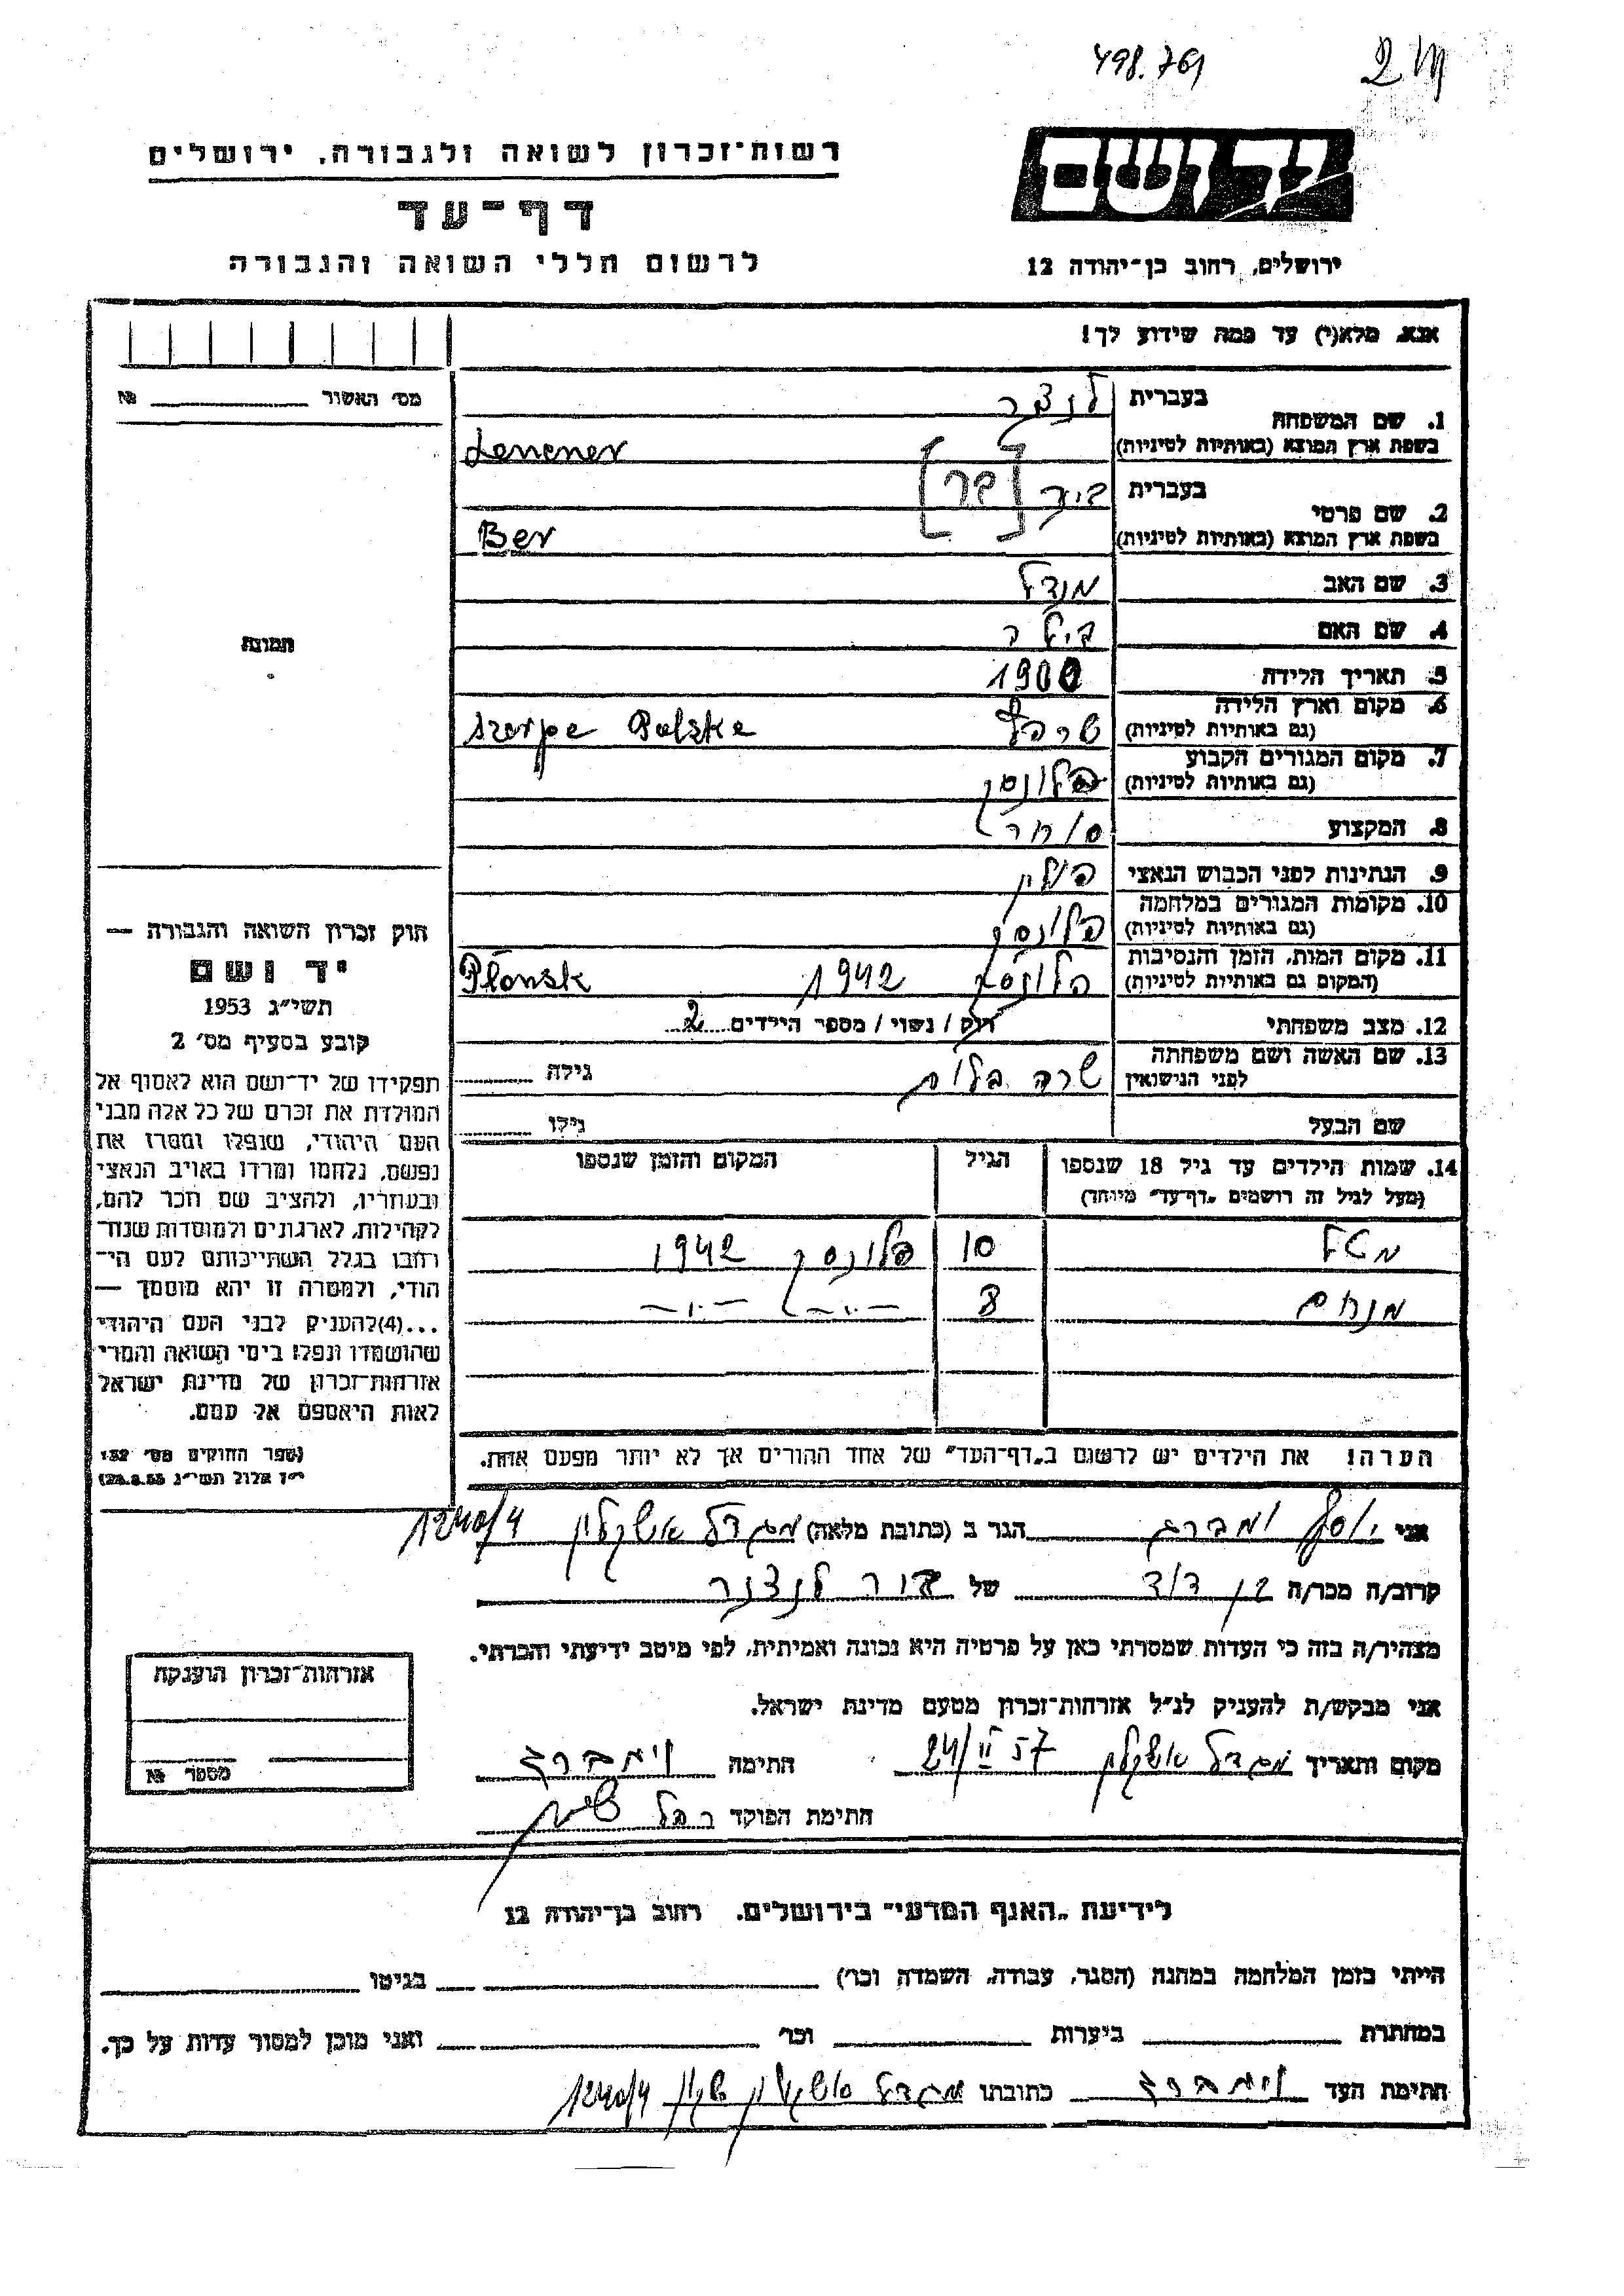 498.761
רשות־זכרון לשואה ולגבורה, ירושלים
דף־עד
לרשום חללי השואה והגבורה
יד ושם
ירושלים, רחוב בן־יהודה 12
אנא, מלא(י) עד כמה שידוע לך!
מס׳ האשור № ________
1. שם המשפחה בעברית לנצנר
בשפת ארץ המוצא (באותיות לטיניות) Lencner
2. שם פרטי בעברית [בר]
בשפת ארץ המוצא (באותיות לטיניות) Ber
3. שם האב מנדל
4. שם האם
5. תאריך הלידה 1900
6. מקום וארץ הלידה
(גם באותיות לטיניות) Polska
7. מקום המגורים הקבוע
(גם באותיות לטיניות) פלונסק
8. המקצוע סוחר
9. הנתינות לפני הכבוש הנאצי פולין
10. מקומות המגורים במלחמה
(גם באותיות לטיניות) פלונסק
11. מקום המות, הזמן והנסיבות
(המקום גם באותיות לטיניות) פלונסק 1942 Płonsk
12. מצב משפחתי רוק / נשוי / מספר הילדים 2
13. שם האשה ושם משפחתה
לפני הנישואין שרה גילה
שם הבעל גילו
14. שמות הילדים עד גיל 18 שנספו הגיל המקום והזמן שנספו
(מעל לגיל זה רושמים „דף־עד״ מיוחד)
10 פלונסק 1942
מנחם 8 —״— —״—
הערה! את הילדים יש לרשום ב„דף־העד״ של אחד ההורים אך לא יותר מפעם אחת.
תמונה
חוק זכרון השואה והגבורה —
יד ושם
תשי״ג 1953
קובע בסעיף מס׳ 2
תפקידו של יד־ושם הוא לאסוף אל
המולדת את זכרם של כל אלה מבני
העם היהודי, שנפלו ומסרו את
נפשם, נלחמו ומרדו באויב הנאצי
ובעוזריו, ולהציב שם וזכר להם,
לקהילות, לארגונים ולמוסדות שנח־
רבו בגלל השתייכותם לעם הי־
הודי, ולמטרה זו יהא מוסמך —
...(4) להעניק לבני העם היהודי
שהושמדו ונפלו בימי השואה והמרי
אזרחות־זכרון של מדינת ישראל
לאות היאספם אל עמם.
(ספר החוקים מס׳ 132
י״ז אלול תשי״ג 28.8.53)
אני יוסף ומברג הגר ב (כתובת מלאה) מגדל אשקלון 1240/4
קרוב/ה מכר/ה בן דוד של לנצנר
מצהיר/ה בזה כי העדות שמסרתי כאן על פרטיה היא נכונה ואמיתית, לפי מיטב ידיעתי והכרתי.
אני מבקש/ת להעניק לנ״ל אזרחות־זכרון מטעם מדינת ישראל.
מקום ותאריך מגדל אשקלון 24/II 57 חתימה ומברג
חתימת הפוקד
אזרחות־זכרון הוענקה
מספר №
לידיעת „האגף המדעי״ בירושלים, רחוב בן־יהודה 12
הייתי בזמן המלחמה במחנה (הסגר, עבודה, השמדה וכו׳) ________ בגיטו ________
במחתרת ________ ביערות ________ וכו׳ ________ ואני מוכן למסור עדות על כך.
חתימת העד ומברג כתובתו מגדל אשקלון שכון 1240/4